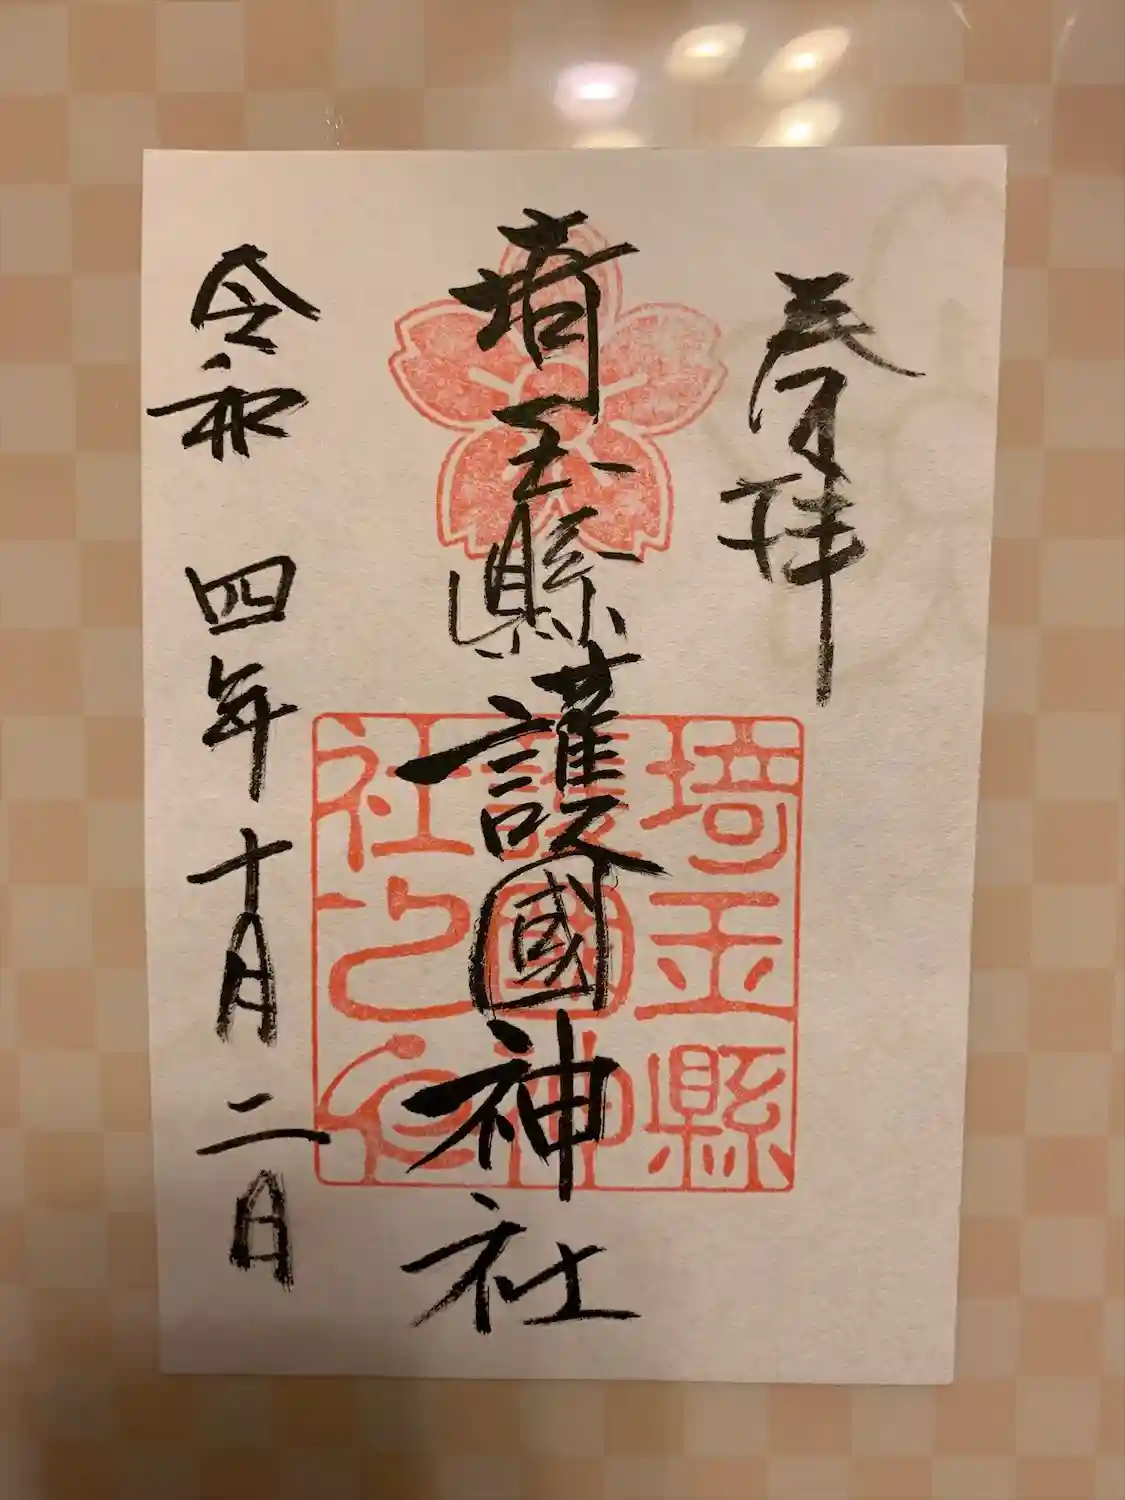 奉拝
埼玉縣護國神社
令和四年十月二日
埼玉縣
護國神
社之印